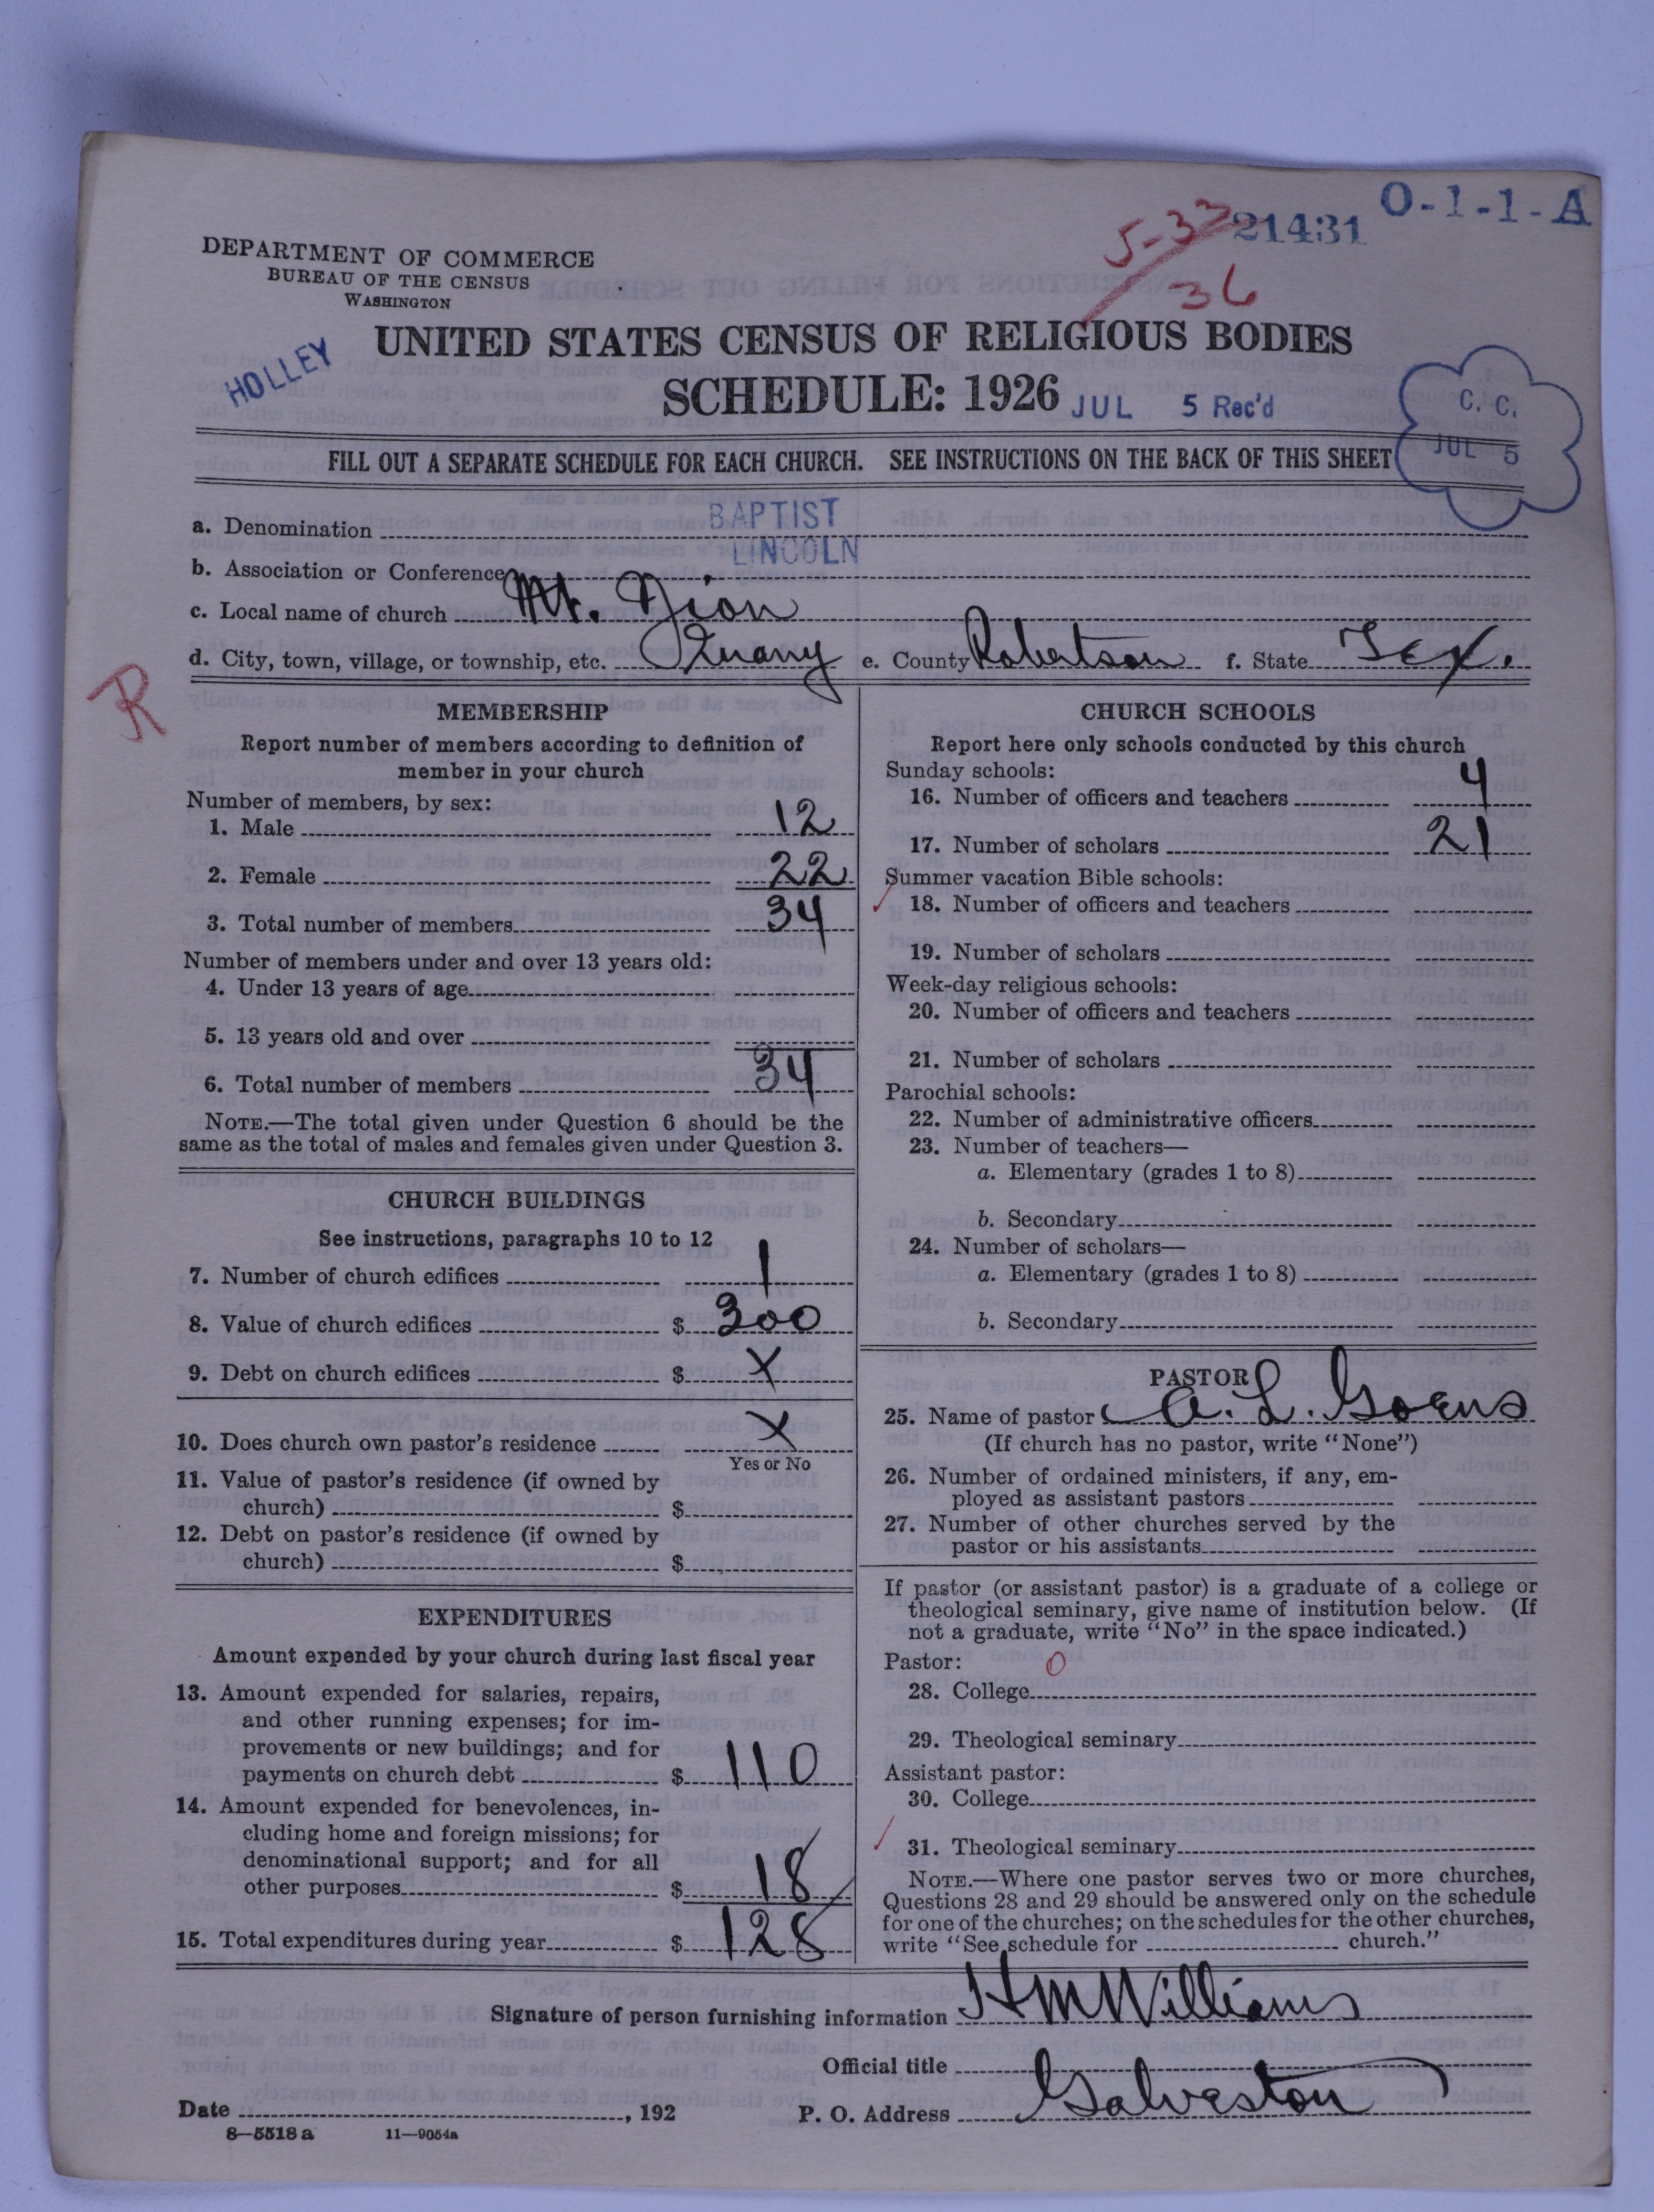 O-1-1-A
21431
5-33
36
DEPARTMENT OF COMMERCE
BUREAU OF THE CENSUS
WASHINGTON
UNITED STATES CENSUS OF RELIGIOUS BODIES
HOLLEY
SCHEDULE: 1926
JUL 5 Rec'd
C. C.
JUL 5
FILL OUT A SEPARATE SCHEDULE FOR EACH CHURCH. SEE INSTRUCTIONS ON THE BACK OF THIS SHEET
a. Denomination BAPTIST
LINCOLN
b. Association or Conference
c. Local name of church Mt. Zion
d. City, town, village, or township, etc. e. County Robertson f. State Tex.
R
MEMBERSHIP
Report number of members according to definition of
member in your church
Number of members, by sex:
1. Male 12
2. Female 22
3. Total number of members 34
Number of members under and over 13 years old:
4. Under 13 years of age
5. 13 years old and over
6. Total number of members 34
NOTE.—The total given under Question 6 should be the
same as the total of males and females given under Question 3.
CHURCH BUILDINGS
See instructions, paragraphs 10 to 12
7. Number of church edifices 1
8. Value of church edifices $ 300
9. Debt on church edifices $ X
10. Does church own pastor's residence X
Yes or No
11. Value of pastor's residence (if owned by
church) $
12. Debt on pastor's residence (if owned by
church) $
EXPENDITURES
Amount expended by your church during last fiscal year
13. Amount expended for salaries, repairs,
and other running expenses; for im-
provements or new buildings; and for
payments on church debt $ 110
14. Amount expended for benevolences, in-
cluding home and foreign missions; for
denominational support; and for all
other purposes $ 18
15. Total expenditures during year $ 128
CHURCH SCHOOLS
Report here only schools conducted by this church
Sunday schools:
16. Number of officers and teachers 4
17. Number of scholars 21
Summer vacation Bible schools:
18. Number of officers and teachers
19. Number of scholars
Week-day religious schools:
20. Number of officers and teachers
21. Number of scholars
Parochial schools:
22. Number of administrative officers
23. Number of teachers—
a. Elementary (grades 1 to 8)
b. Secondary
24. Number of scholars—
a. Elementary (grades 1 to 8)
b. Secondary
PASTOR
25. Name of pastor A. L. Goens
(If church has no pastor, write "None")
26. Number of ordained ministers, if any, em-
ployed as assistant pastors
27. Number of other churches served by the
pastor or his assistants
If pastor (or assistant pastor) is a graduate of a college or
theological seminary, give name of institution below. (If
not a graduate, write "No" in the space indicated.)
Pastor: 0
28. College
29. Theological seminary
Assistant pastor:
30. College
31. Theological seminary
NOTE.—Where one pastor serves two or more churches,
Questions 28 and 29 should be answered only on the schedule
for one of the churches; on the schedules for the other churches,
write "See schedule for church."
Signature of person furnishing information H M Williams
Official title
Date , 192 P. O. Address Galveston
8—5518a 11—9054a